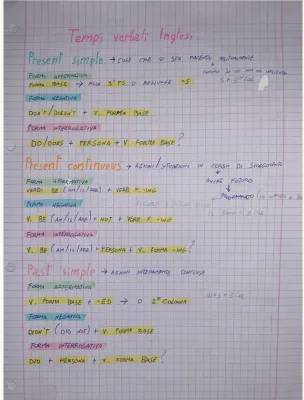 Tempi verbali Inglesi
Present simple → cose che si
FORMA AFFERMATIVA
FORMA BASE → alla 3ª P.S. si aggiunge -S
FORMA NEGATIVA
DON'T/DOESN'T + V. FORMA BASE
FORMA INTERROGATIVA
DO/DOES + PERSONA + V. FORMA BASE?
Present continuous → AZIONI/SITUAZIONI IN CORSO DI SVOLGIMENTO
FORMA AFFERMATIVA
VERBO BE (AM/IS/ARE) + VERB F. -ING
FORMA NEGATIVA
V. BE (AM/IS/ARE) + NOT + VERB F. -ING
FORMA INTERROGATIVA
V. BE (AM/IS/ARE) + PERSONA + V. FORMA -ING?
Past simple → AZIONI INTERAMENTE CONCLUSE
FORMA AFFERMATIVA
V. FORMA BASE + -ED → O 2ª COLONNA
FORMA NEGATIVA
DIDN'T (DID NOT) + V. FORMA BASE
FORMA INTERROGATIVA
DID + PERSONA + V. FORMA BASE?